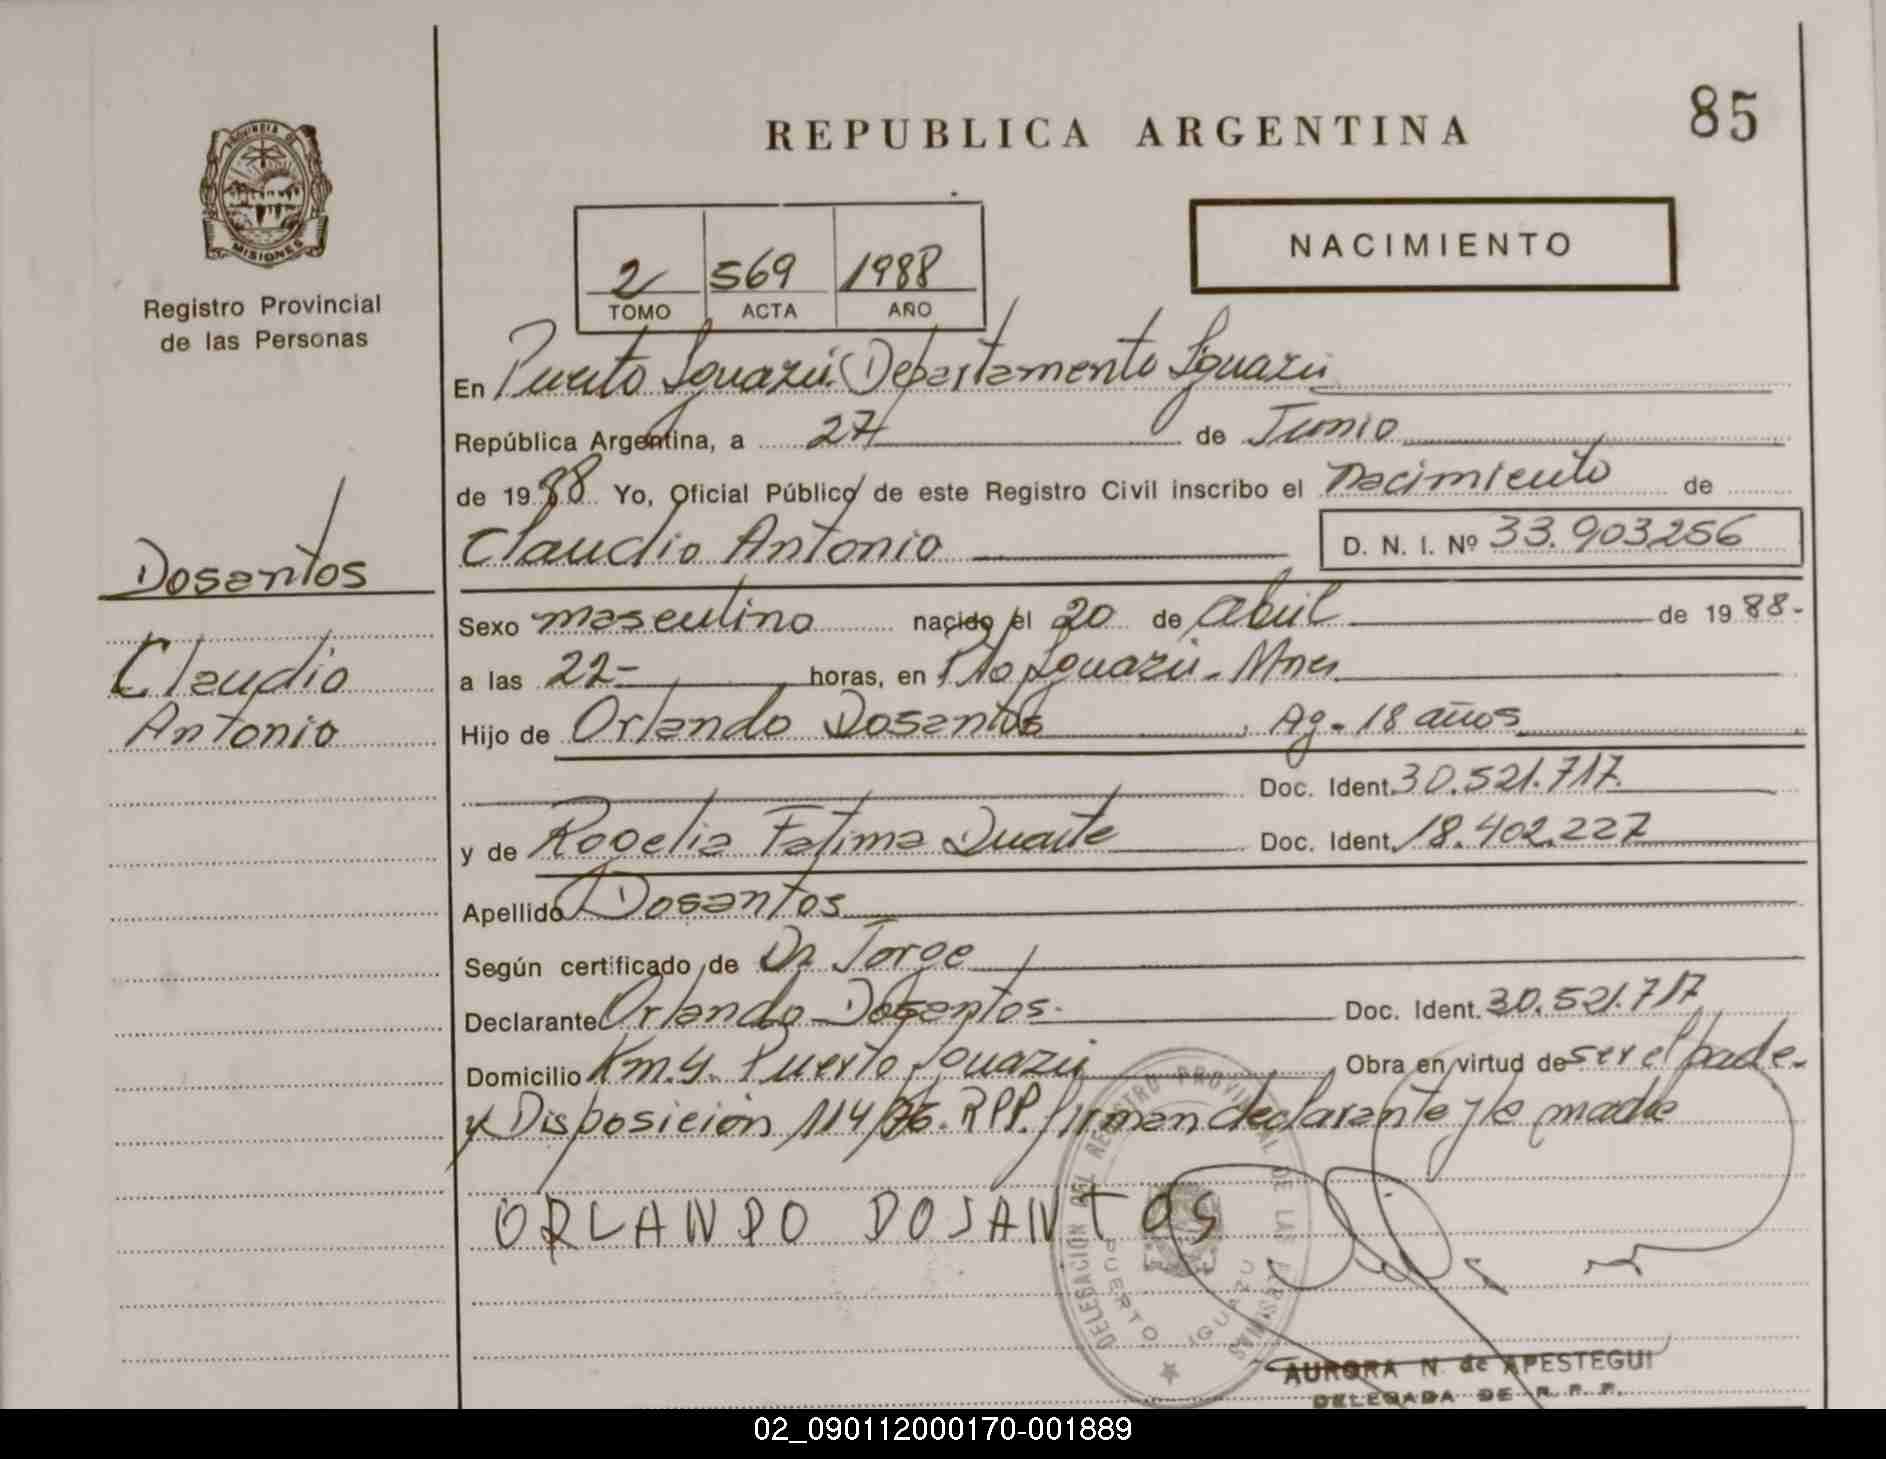 REPUBLICA ARGENTINA
85
PROVINCIA DE
MISIONES
Registro Provincial
de las Personas
2 569 1988
TOMO ACTA AÑO
NACIMIENTO
En Puerto Iguazú Departamento Iguazú
República Argentina, a 27 de Junio
de 1988 Yo, Oficial Público de este Registro Civil inscribo el nacimiento de
Claudio Antonio D. N. I. Nº 33.903.256
Dosantos
Claudio
Antonio
Sexo masculino nacido el 20 de abril de 1988-
a las 22- horas, en Pto Iguazú - Mnes
Hijo de Orlando Dosantos, Ag- 18 años
Doc. Ident. 30.521.717
y de Rogelia Fatima Duarte Doc. Ident. 18.402.227
Apellido Dosantos
Según certificado de Dr Jorge
Declarante Orlando Dosantos- Doc. Ident. 30.521.717
Domicilio Km.4. Puerto Iguazú Obra en virtud de ser el padre-
y Disposición 114/ RPP. firman declarante y la madre
ORLANDO DOSANTOS
DELEGACION DEL REGISTRO PROVINCIAL DE LAS PERSONAS
PUERTO IGUAZU
AURORA N. de APESTEGUI
DELEGADA DE R. P. P.
02_090112000170-001889